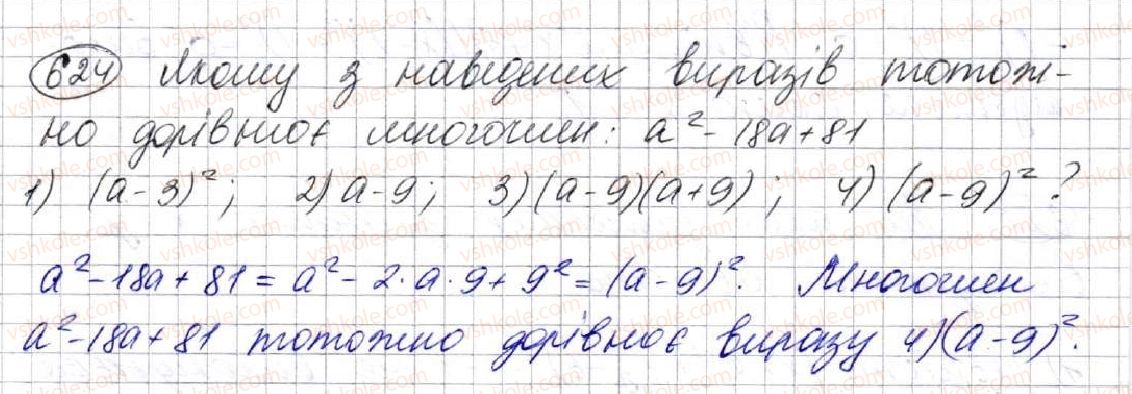 624 Якому з наведених виразів тотож-
но дорівнює многочлен: a² - 18a + 81
1) (a - 3)²; 2) a - 9; 3) (a - 9)(a + 9); 4) (a - 9)²?
a² - 18a + 81 = a² - 2·a·9 + 9² = (a - 9)². Многочлен
a² - 18a + 81 тотожно дорівнює виразу 4) (a - 9)².